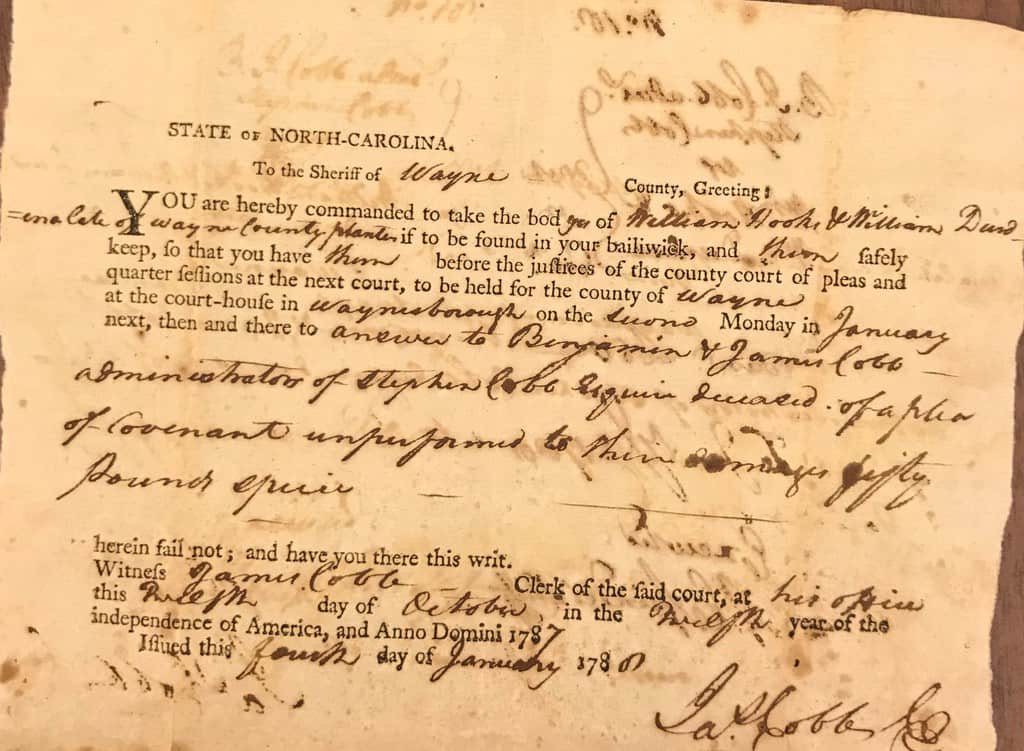 No. 10.
STATE OF NORTH-CAROLINA.
To the Sheriff of Wayne County, Greeting:
YOU are hereby commanded to take the bod yes of William Hooks & William Dund
=en late of Wayne County planters if to be found in your bailiwick, and them ſafely
keep, ſo that you have them before the juſtices of the county court of pleas and
quarter ſeſſions at the next court, to be held for the county of Wayne
at the court-houſe in Waynesborough on the second Monday in January
next, then and there to answer to Benjamin & James Cobb
administrators of Stephen Cobb Esquire deceased. of a plea
of Covenant unperformed to their damages fifty
pounds specie
herein fail not; and have you there this writ.
Witneſs James Cobb Clerk of the ſaid court, at his office
this Twelfth day of October, in the Twelfth year of the
independence of America, and Anno Domini 1787
Iſſued this fourth day of January 1788
Jas. Cobb